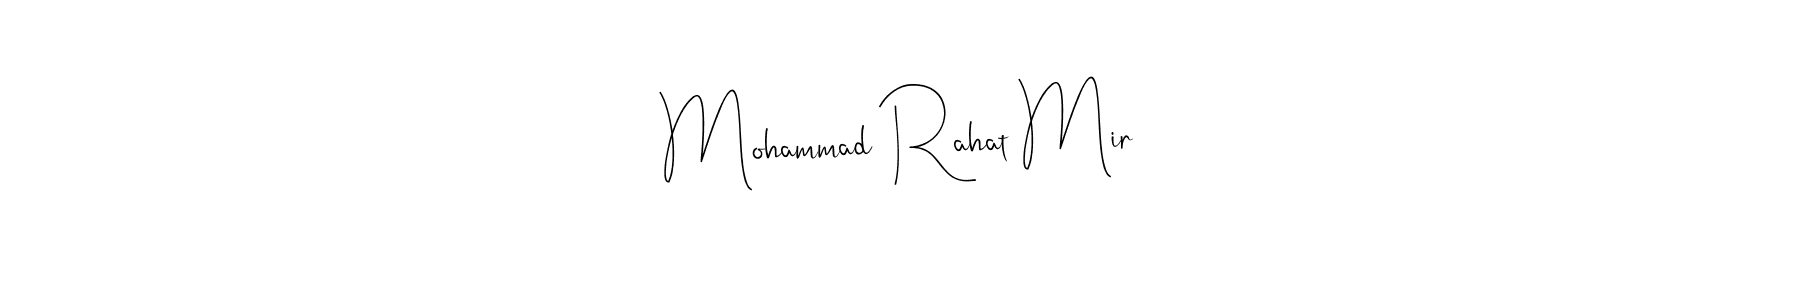 Mohammad Rahat Mir